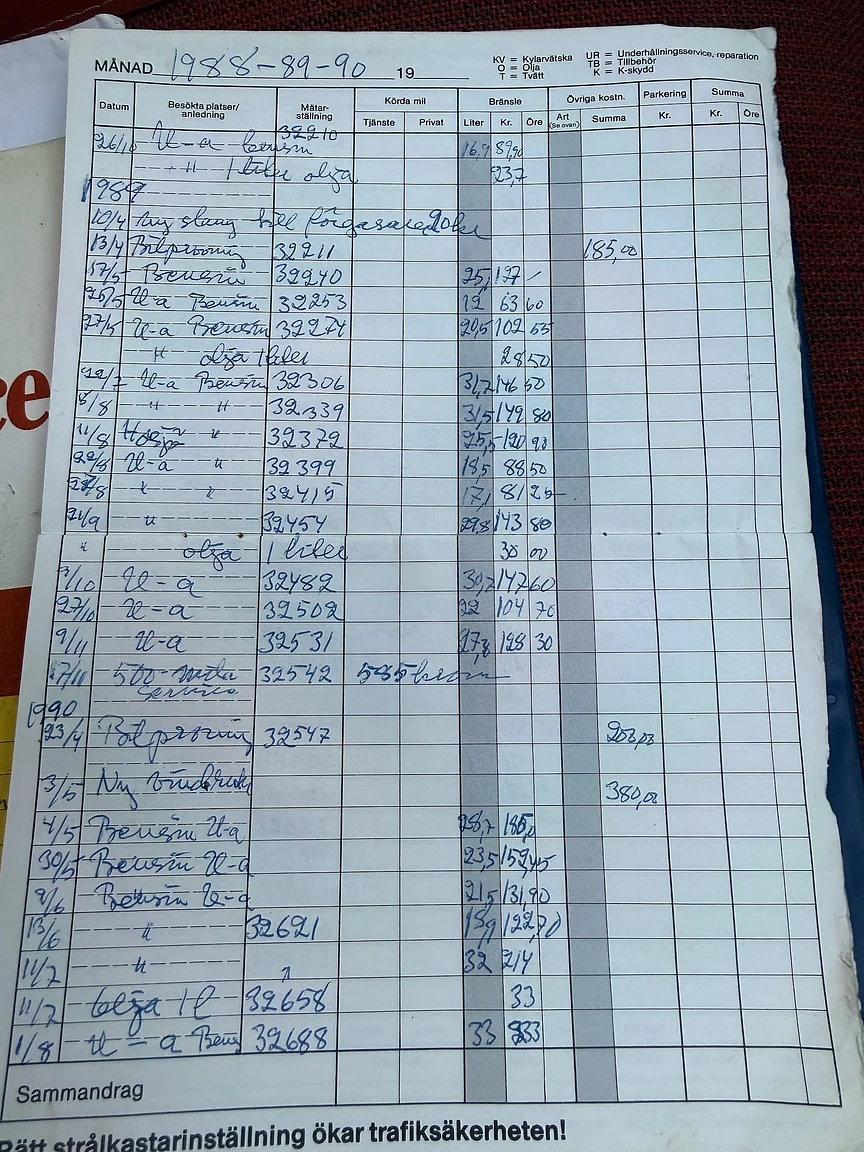 MÅNAD 1988-89-90 19
KV = Kylarvätska
O = Olja
T = Tvätt
UR = Underhållningsservice, reparation
TB = Tillbehör
K = K-skydd
Datum Besökta platser/anledning Mätarställning Körda mil Bränsle Övriga kostn. Parkering Summa
Tjänste Privat Liter Kr. Öre Art (Se ovan) Summa Kr. Kr. Öre
26/10 U-a bensin 32210 16,9 89,90
" 1 liter olja 23,7
1989
10/4 ny slang till förgasare 20kr
13/4 Bilprovning 32211 185,00
17/5 Bensin 32240 25, 127 -
25/5 U-a Bensin 32253 12 63 60
27/5 U-a Bensin 32274 20,5 102 55
" olja 1 liter 28 50
U-a Bensin 32306 31,2 146 50
8/8 " " 32339 31,5 149 80
11/8 " 32372 25,5 120 90
22/8 U-a " 32399 18,5 88 50
" " 32415 17,1 81 25
21/9 " 32454 29,8 143 80
" olja 1 liter 30 00
7/10 U-a 32482 30,7 147 60
27/10 U-a 32502 22 104 70
9/11 U-a 32531 27,8 128 30
17/11 500-mila service 32542 585 kronor
1990
23/4 Bilprovning 32547 203,00
3/5 Ny 380,00
4/5 Bensin U-a 28,7 185,0
30/5 Bensin U-a 23,5 152,45
9/6 Bensin U-a 21,5 131,90
13/6 " 32621 18,9 122,70
11/7 " 32 214
11/7 olja 1 l 32658 33
1/8 U-a Bens 32688 33 233
Sammandrag
Rätt strålkastarinställning ökar trafiksäkerheten!